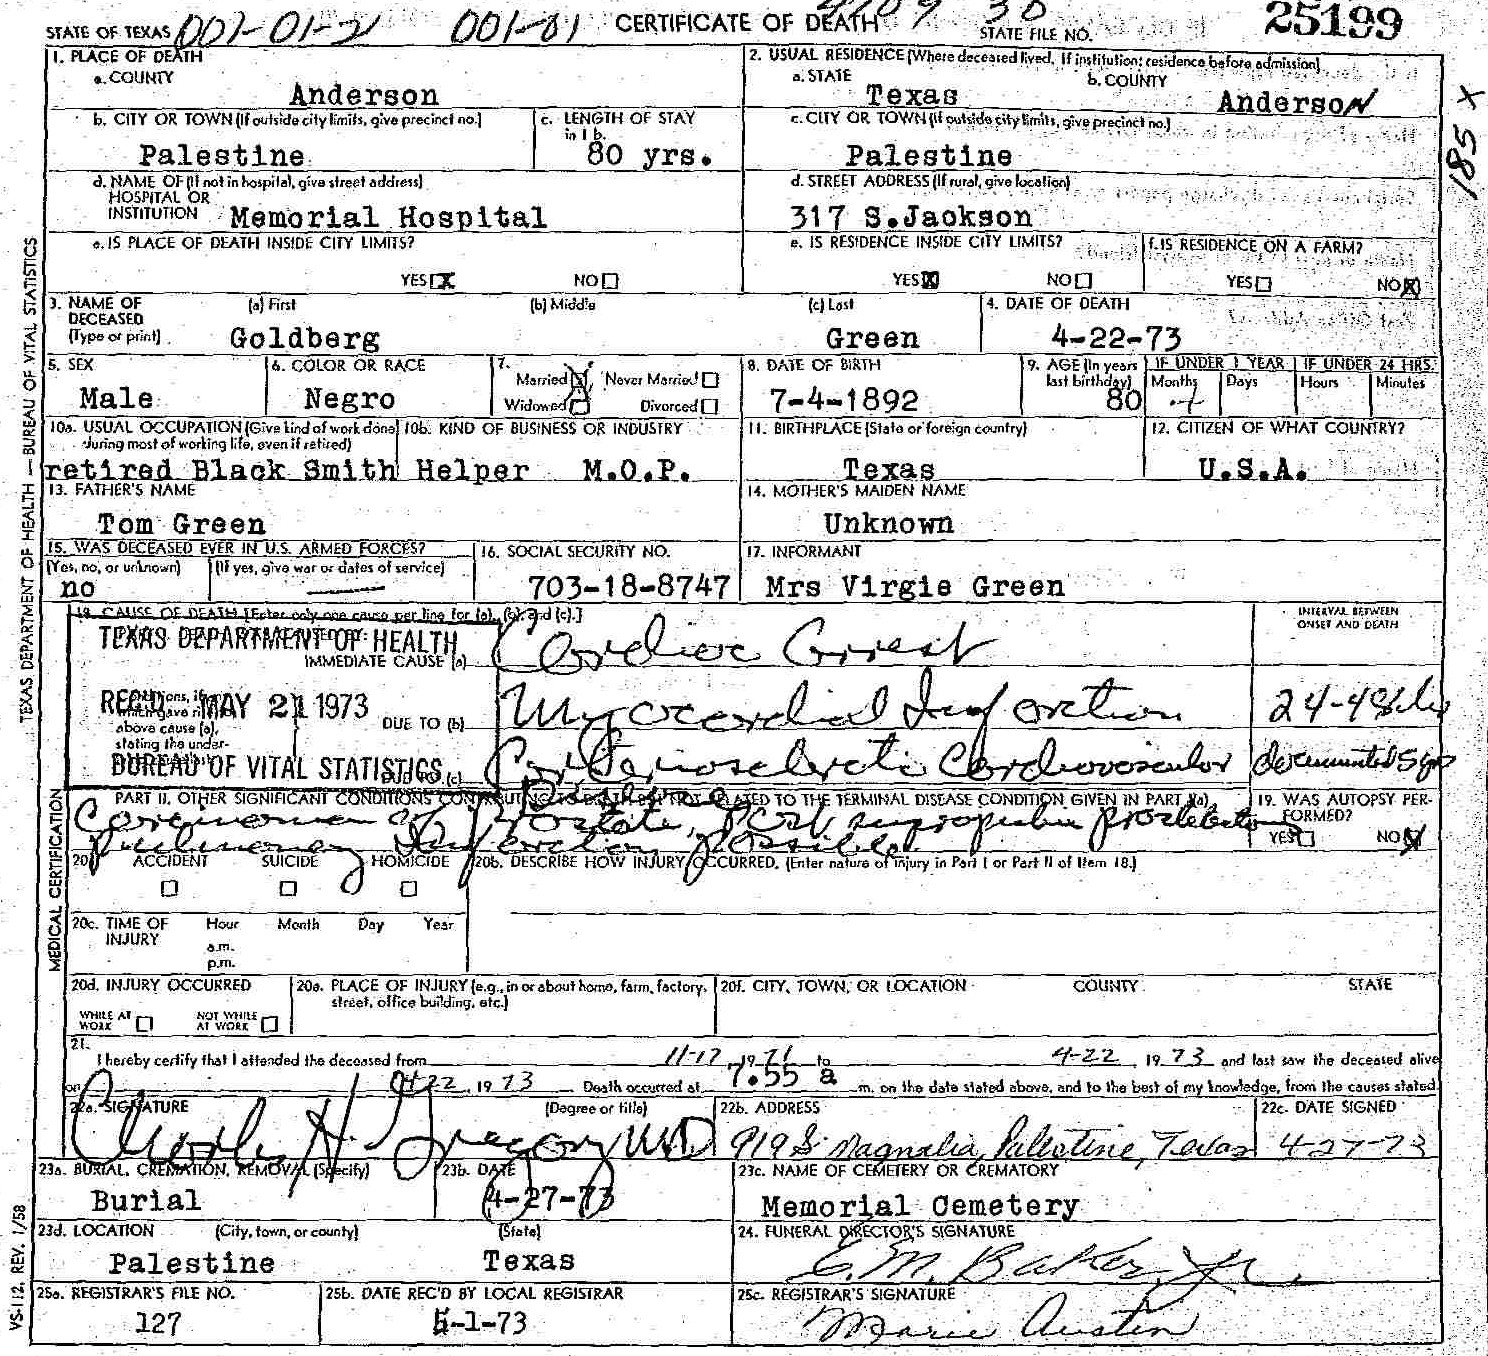 STATE OF TEXAS 001-01-21 001-01 CERTIFICATE OF DEATH 4109 30 STATE FILE NO. 25199
1. PLACE OF DEATH
a. COUNTY
Anderson
2. USUAL RESIDENCE (Where deceased lived. If institution: residence before admission)
a. STATE b. COUNTY
Texas Anderson
185 X
b. CITY OR TOWN (If outside city limits, give precinct no.) c. LENGTH OF STAY in 1 b.
Palestine 80 yrs.
c. CITY OR TOWN (If outside city limits, give precinct no.)
Palestine
d. NAME OF (If not in hospital, give street address)
HOSPITAL OR
INSTITUTION Memorial Hospital
d. STREET ADDRESS (If rural, give location)
317 S.Jackson
e. IS PLACE OF DEATH INSIDE CITY LIMITS?
YES X NO
e. IS RESIDENCE INSIDE CITY LIMITS? f. IS RESIDENCE ON A FARM?
YES X NO YES NO X
3. NAME OF DECEASED (Type or print) (a) First (b) Middle (c) Last 4. DATE OF DEATH
Goldberg Green 4-22-73
5. SEX 6. COLOR OR RACE 7. Married X Never Married Widowed Divorced 8. DATE OF BIRTH 9. AGE (In years last birthday) IF UNDER 1 YEAR IF UNDER 24 HRS.
Months Days Hours Minutes
Male Negro 7-4-1892 80
10a. USUAL OCCUPATION (Give kind of work done during most of working life, even if retired) 10b. KIND OF BUSINESS OR INDUSTRY 11. BIRTHPLACE (State or foreign country) 12. CITIZEN OF WHAT COUNTRY?
retired Black Smith Helper M.O.P. Texas U.S.A.
13. FATHER'S NAME 14. MOTHER'S MAIDEN NAME
Tom Green Unknown
15. WAS DECEASED EVER IN U.S. ARMED FORCES? 16. SOCIAL SECURITY NO. 17. INFORMANT
(Yes, no, or unknown) (If yes, give war or dates of service)
no 703-18-8747 Mrs Virgie Green
18. CAUSE OF DEATH [Enter only one cause per line for (a), (b), and (c).] INTERVAL BETWEEN ONSET AND DEATH
TEXAS DEPARTMENT OF HEALTH
IMMEDIATE CAUSE (a) Cardiac Arrest
REC'D MAY 21 1973
DUE TO (b) Myocardial Infarction 24-48 hrs
BUREAU OF VITAL STATISTICS
DUE TO (c) Arteriosclerotic Cardiovascular Disease documented 5 yrs
PART II. OTHER SIGNIFICANT CONDITIONS CONTRIBUTING TO DEATH BUT NOT RELATED TO THE TERMINAL DISEASE CONDITION GIVEN IN PART I(a) 19. WAS AUTOPSY PERFORMED?
Carcinoma of Prostate, post suprapubic prostatectomy YES NO X
pulmonary Infarction possible.
20a. ACCIDENT SUICIDE HOMICIDE 20b. DESCRIBE HOW INJURY OCCURRED. (Enter nature of injury in Part I or Part II of Item 18.)
20c. TIME OF INJURY Hour Month Day Year
a.m.
p.m.
20d. INJURY OCCURRED 20e. PLACE OF INJURY (e.g., in or about home, farm, factory, street, office building, etc.) 20f. CITY, TOWN, OR LOCATION COUNTY STATE
WHILE AT WORK NOT WHILE AT WORK
21.
I hereby certify that I attended the deceased from 11-17, 1971 to 4-22, 1973 and last saw the deceased alive
on 4-22 1973 Death occurred at 7:55 a m. on the date stated above, and to the best of my knowledge, from the causes stated.
22a. SIGNATURE (Degree or title) 22b. ADDRESS 22c. DATE SIGNED
Charles H. Gregory MD 919 S Magnolia, Palestine, Texas 4-27-73
23a. BURIAL, CREMATION, REMOVAL (Specify) 23b. DATE 23c. NAME OF CEMETERY OR CREMATORY
Burial 4-27-73 Memorial Cemetery
23d. LOCATION (City, town, or county) (State) 24. FUNERAL DIRECTOR'S SIGNATURE
Palestine Texas E.M. Baker, Jr.
25a. REGISTRAR'S FILE NO. 25b. DATE REC'D BY LOCAL REGISTRAR 25c. REGISTRAR'S SIGNATURE
127 5-1-73 Marie Austin
TEXAS DEPARTMENT OF HEALTH — BUREAU OF VITAL STATISTICS
MEDICAL CERTIFICATION
VS-112, REV. 1/58